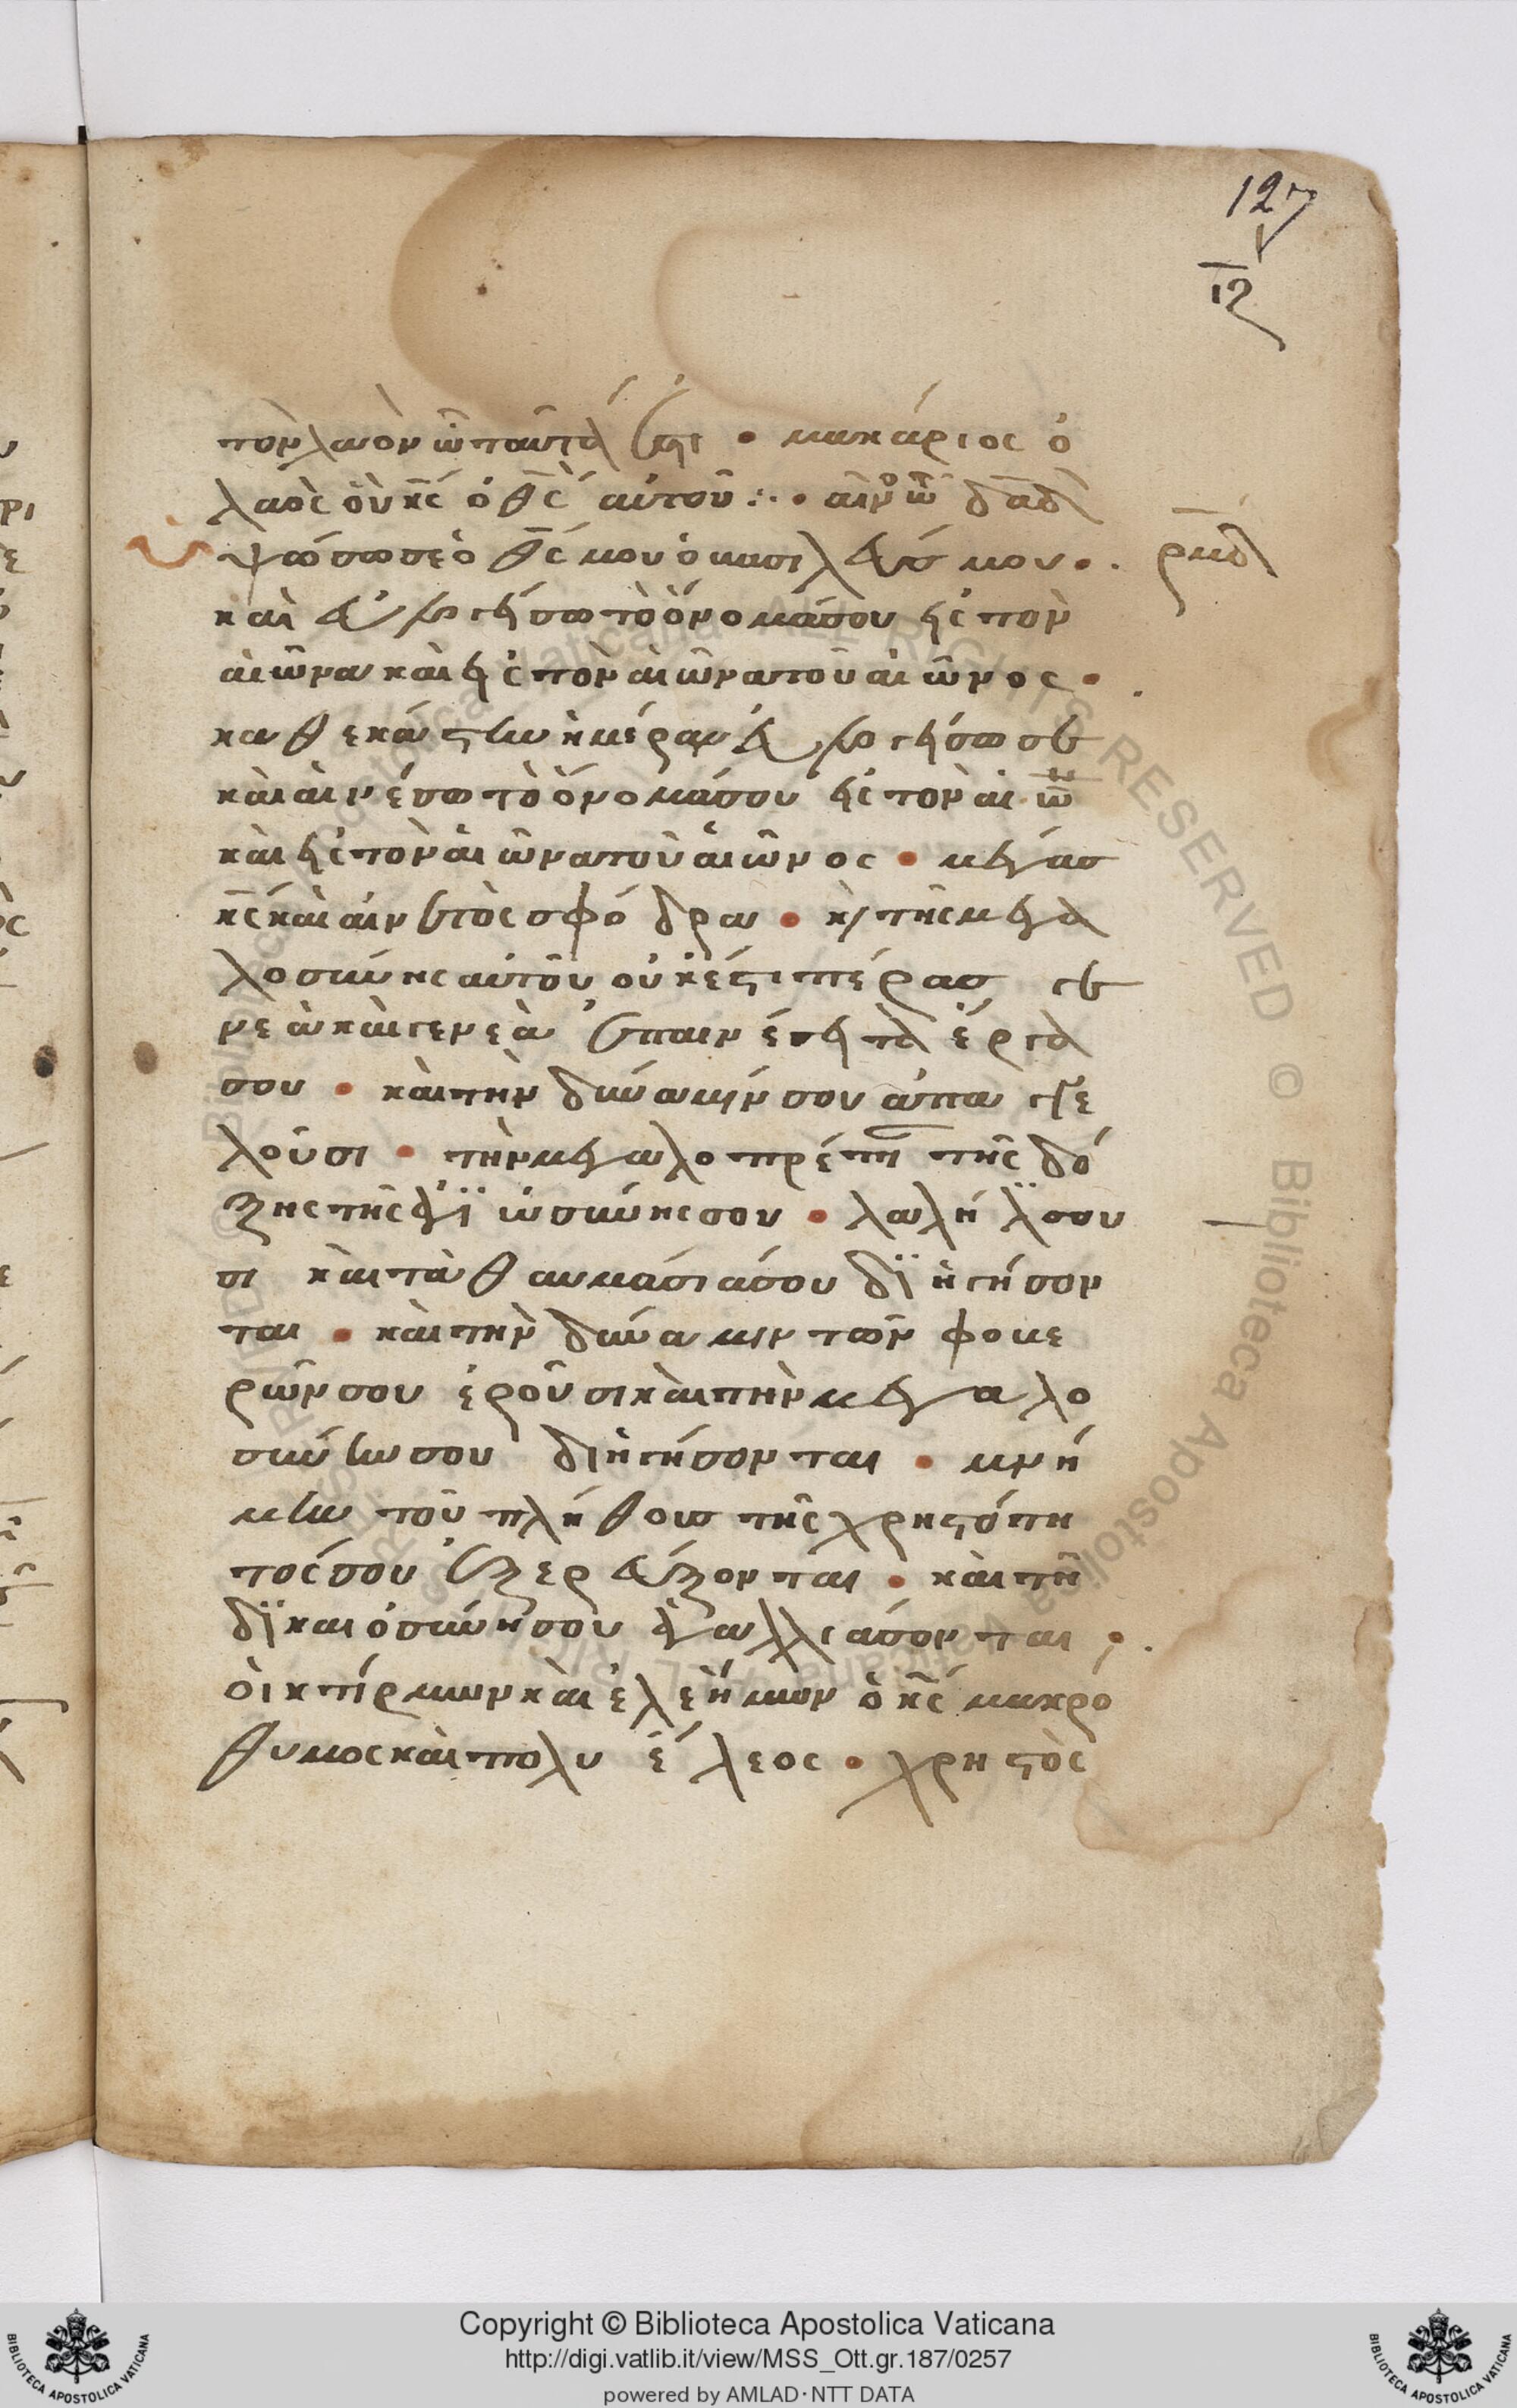 127
ιζ
τὸν λαὸν ὧ ταῦτά ἐστι • μακάριος ὁ
λαὸς οὗ κ̅ς̅ ὁ θ̅ς̅ αὐτοῦ :· • αιν ω δα̅δ̅
ὑψώσω σε ὁ θ̅ς̅ μου ὁ βασιλεύσ μου • . ρμδ
καὶ εὐλογήσω τὸ ὄνομά σου εἰς τὸν
αἰῶνα καὶ εἰς τὸν αἰῶνα τοῦ αἰῶνος •
καθ εκάστην ἡμέραν εὐλογήσω σε
καὶ αἰνέσω τὸ ὄνομά σου εἰς τὸν αἰῶν
καὶ εἰς τὸν αἰῶνα τοῦ αἰῶνος • μέγασ
κ̅ς̅ καὶ αἰνετὸς σφόδρα • κ̀ τῆς μεγα
λοσύνης αὐτοῦ οὐκ έστι πέρασ γε
νεὰ καὶ γενεὰ ἐπαινέσει τὰ ἔργα
σου • καὶ τὴν δύναμίν σου ἀπαγγε
λοῦσι • τὴν μεγαλοπρέπι τῆς δό
ξης τῆς ἁγϊωσύνης σου • λαλήλσου
σι καὶ τὰ θαυμάσιά σου δϊηγήσον
ται • καὶ τὴν δύναμιν τῶν φοβε
ρῶν σου ἐροῦσι καὶ τὴν μεγαλο
σύνην σου διηγήσονται • μνή
μην τοῦ πλήθουσ τῆς χρηστότη
τοσ σου ἐξερεύξονται • καὶ τῆ
δϊκαιοσύνη σου ἀγαλλιάσονται • .
οἰκτίρμων καὶ ἐλεήμων ὁ κ̅ς̅ μακρό
θυμος καὶ πολυέλεος • χρηστὸς
Copyright © Biblioteca Apostolica Vaticana
http://digi.vatlib.it/view/MSS_Ott.gr.187/0257
powered by AMLAD·NTT DATA